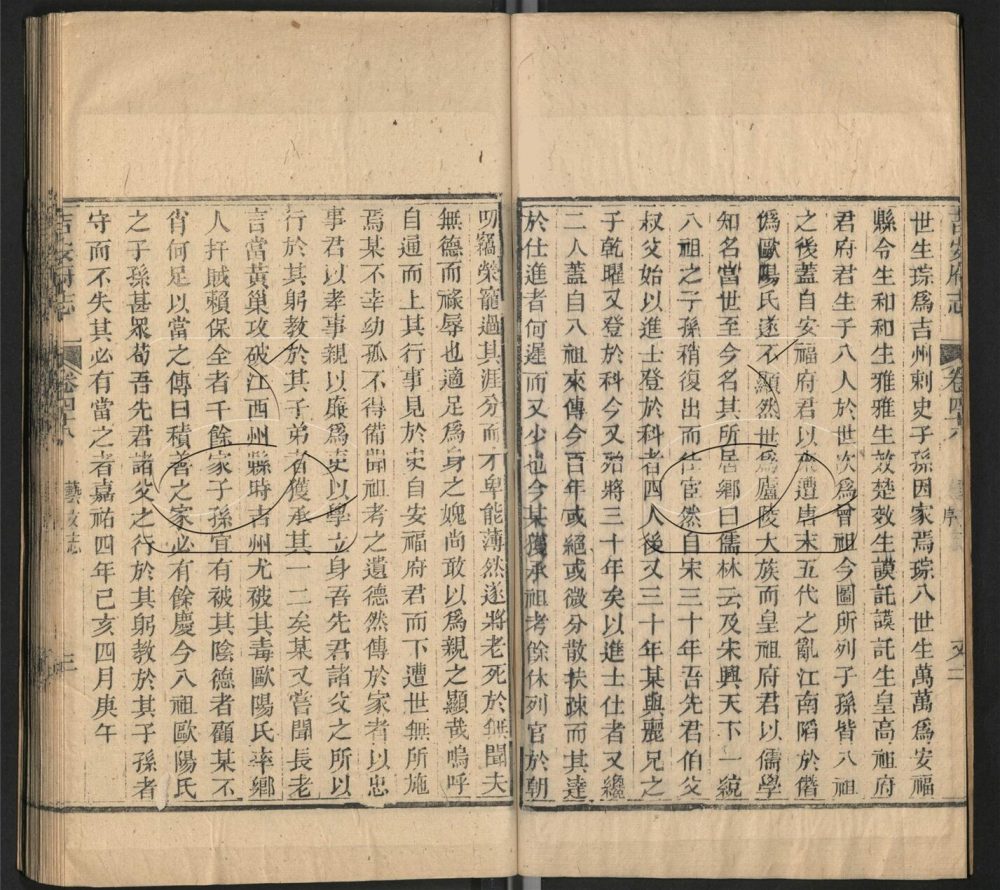 世生琮爲吉州刺史子孫因家焉琮八世生萬萬爲安福
縣令生和和生雅雅生效楚效生謨託謨託生皇高祖府
君府君生子八人於世次爲曾祖今圖所列子孫皆八祖
之後蓋自安福府君以來遭唐末五代之亂江南陷於僭
僞歐陽氏遂不顯然世爲廬陵大族而皇祖府君以儒學
知名當世至今名其所居鄉曰儒林云及宋興天下一統
八祖之子孫稍復出而仕宦然自宋三十年吾先君伯父
叔父始以進士登於科者四人後又三十年某與麗兄之
子乾曜又登於科今又殆將三十年矣以進士仕者又纔
二人蓋自八祖來傳今百年或絕或微分散扶疎而其達
於仕進者何遲而又少也今某獲承祖考餘休列官於朝
叨竊榮寵過其涯分而才卑能薄然遂將老死於無聞夫
無德而祿辱也適足爲身之媿尚敢以爲親之顯哉嗚呼
自通而上其行事見於史自安福府君而下遭世無所施
焉某不幸幼孤不得備聞祖考之遺德然傳於家者以忠
事君以孝事親以廉爲吏以學立身吾先君諸父之所以
行於其躬教於其子弟者獲承其一二矣某又嘗聞長老
言當黃巢攻破江西州縣時吉州尤被其毒歐陽氏率鄉
人扞賊賴保全者千餘家子孫宜有被其陰德者顧某不
肖何足以當之傳曰積善之家必有餘慶今八祖歐陽氏
之子孫甚眾苟吾先君諸父之行於其躬教於其子孫者
守而不失其必有當之者嘉祐四年己亥四月庚午
吉安府志
卷四十八
文二
吉安府志
卷四十八
藝文志
三